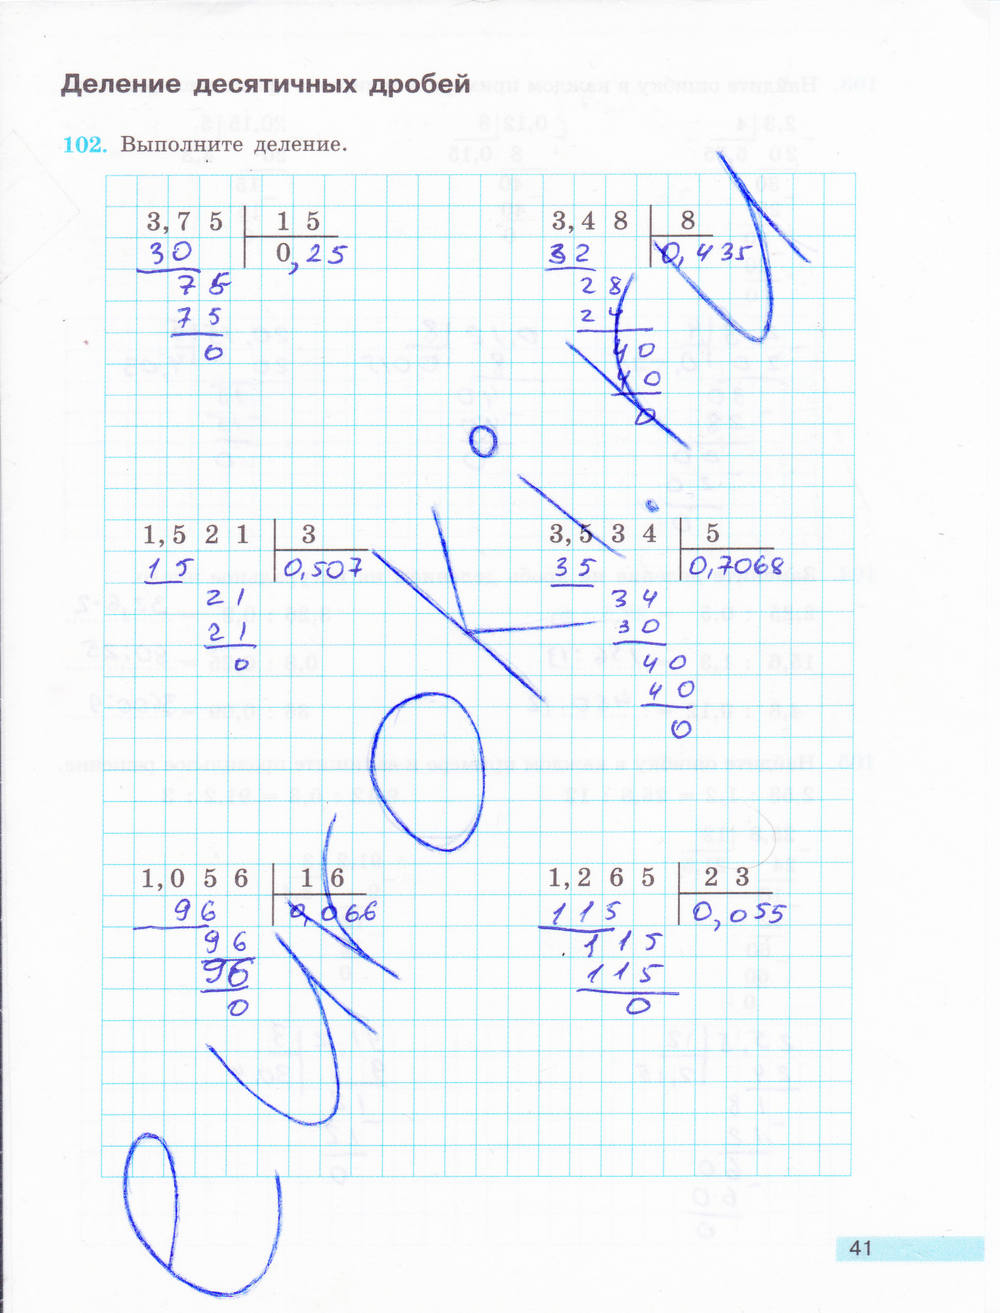 Деление десятичных дробей
102. Выполните деление.
3,75 | 15
30 | 0,25
75
75
0
3,48 | 8
32 | 0,435
28
24
40
40
0
1,521 | 3
15 | 0,507
21
21
0
3,534 | 5
35 | 0,7068
34
30
40
40
0
1,056 | 16
96 | 0,066
96
96
0
1,265 | 23
115 | 0,055
115
115
0
41